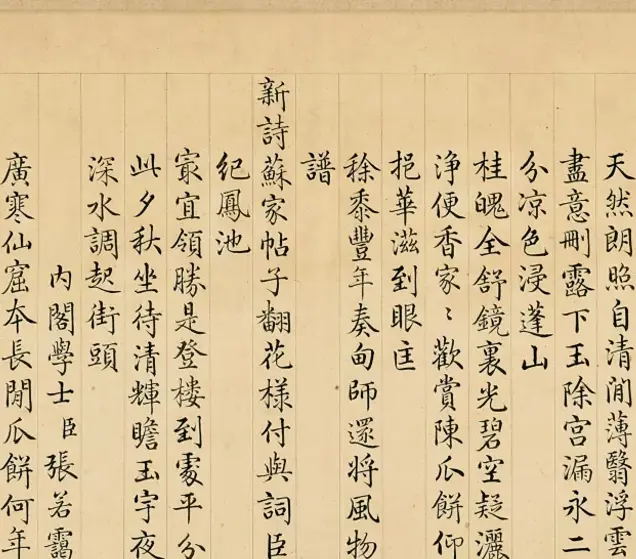 天然朗照自清閒薄翳浮雲
盡意刪露下玉除宮漏永二
分涼色浸蓬山
桂魄全舒鏡裏光碧空疑灑
浄便香家〻歡賞陳瓜餅仰
挹華滋到眼匡
稌黍豐年奏甸師還將風物
譜
新詩蘇家帖子翻花樣付與詞臣
紀鳳池
㝡宜領勝是登樓到處平分
此夕秋坐待清輝瞻玉宇夜
深水調起街頭
內閣學士臣張若靄
廣寒仙窟本長閒瓜餅何年